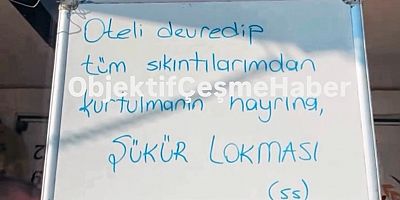 Oteli devredip
tüm sıkıntılarımdan
ObjektifÇeşmeHaber
kurtulmanın hayrına,
ŞÜKÜR LOKMASI
(ss)